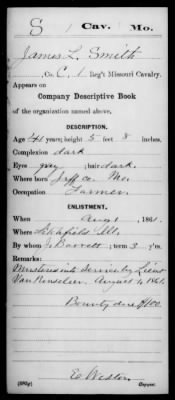 S | 1 | Cav. | Mo.
James L. Smith
, Co. C, 1 Reg't Missouri Cavalry.
Appears on
Company Descriptive Book
of the organization named above.
DESCRIPTION.
Age 41 years; height 5 feet 8 inches.
Complexion dark
Eyes grey; hair dark.
Where born Jeff co. Mo.
Occupation Farmer.
ENLISTMENT.
When Aug 1, 1861.
Where Litchfield Ills.
By whom J. Barrett; term 3 y'rs.
Remarks:
Mustered into service by Lieut
Van Renselear August 1, 1861.
Bounty due $100.
E. Weston
Copyist.